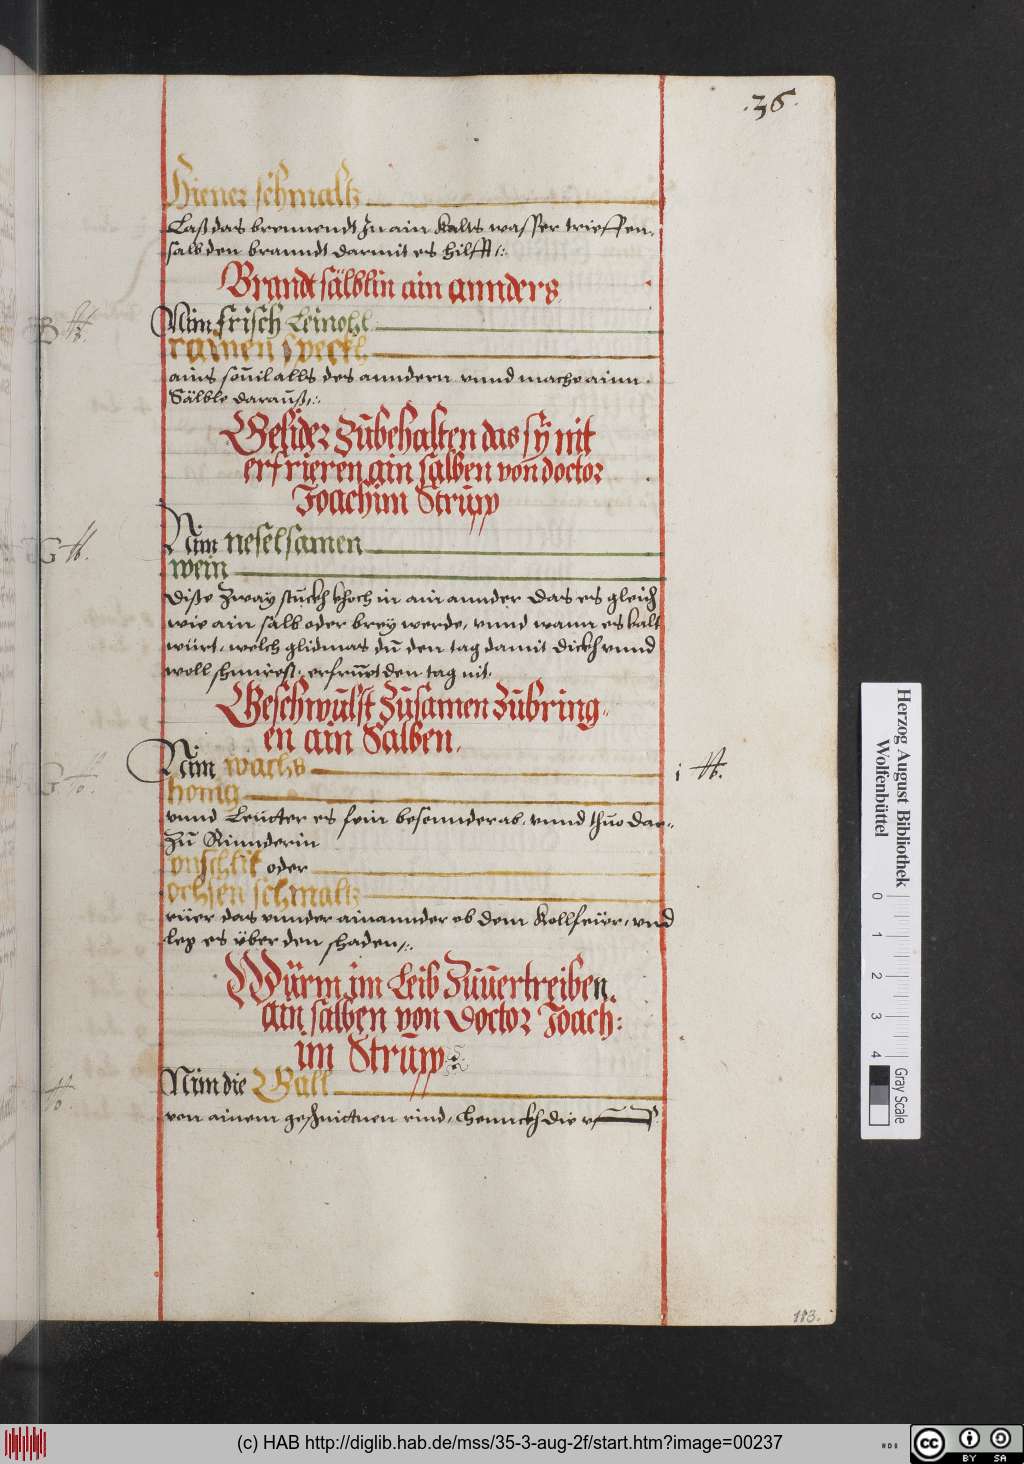 .36.
Hiener schmaltz
Laß das brennendt Jn ain kalts wasser trieffen,
salb den branndt darmit es hilfft
Brandt sälblin ain annders
Nim frisch Leinoehl
rainen Speckh
ains souil alls des anndern vnnd mache ainn
Sälble darauß
Gelider Zubehalten das sÿ nit
erfrieren ain salben von doctor
Joachim Strupp
Nim neselsamen
wein
dise Zway stuckh khoch in ain annder das es gleich
wie ain salb oder brey werde, vnnd wann es kalt
würt, welch glidmas du den tag damit dickh vnnd
woll shmirest, erfrürt den tag nit.
Geschwulst Zusamen Zubring
en ain Salben.
Nim wachs
i ℔.
honig
vnnd Leutter es fein besonnder ab, vnnd thuo dar
Zu Rinnderin
vnschlit oder
ochsen schmaltz
rüer das vnnder ainannder ob dem Kollfeüer, vnd
leg es über den schaden
Würm im Leib Zuuertreiben.
ain salben von Doctor Joach:
im Strupp
Nim die Gall
von ainem geschnittnen rind, hennckh die
183.
Herzog August Bibliothek
Wolfenbüttel
0 1 2 3 4
Gray Scale
(c) HAB http://diglib.hab.de/mss/35-3-aug-2f/start.htm?image=00237
cc BY SA